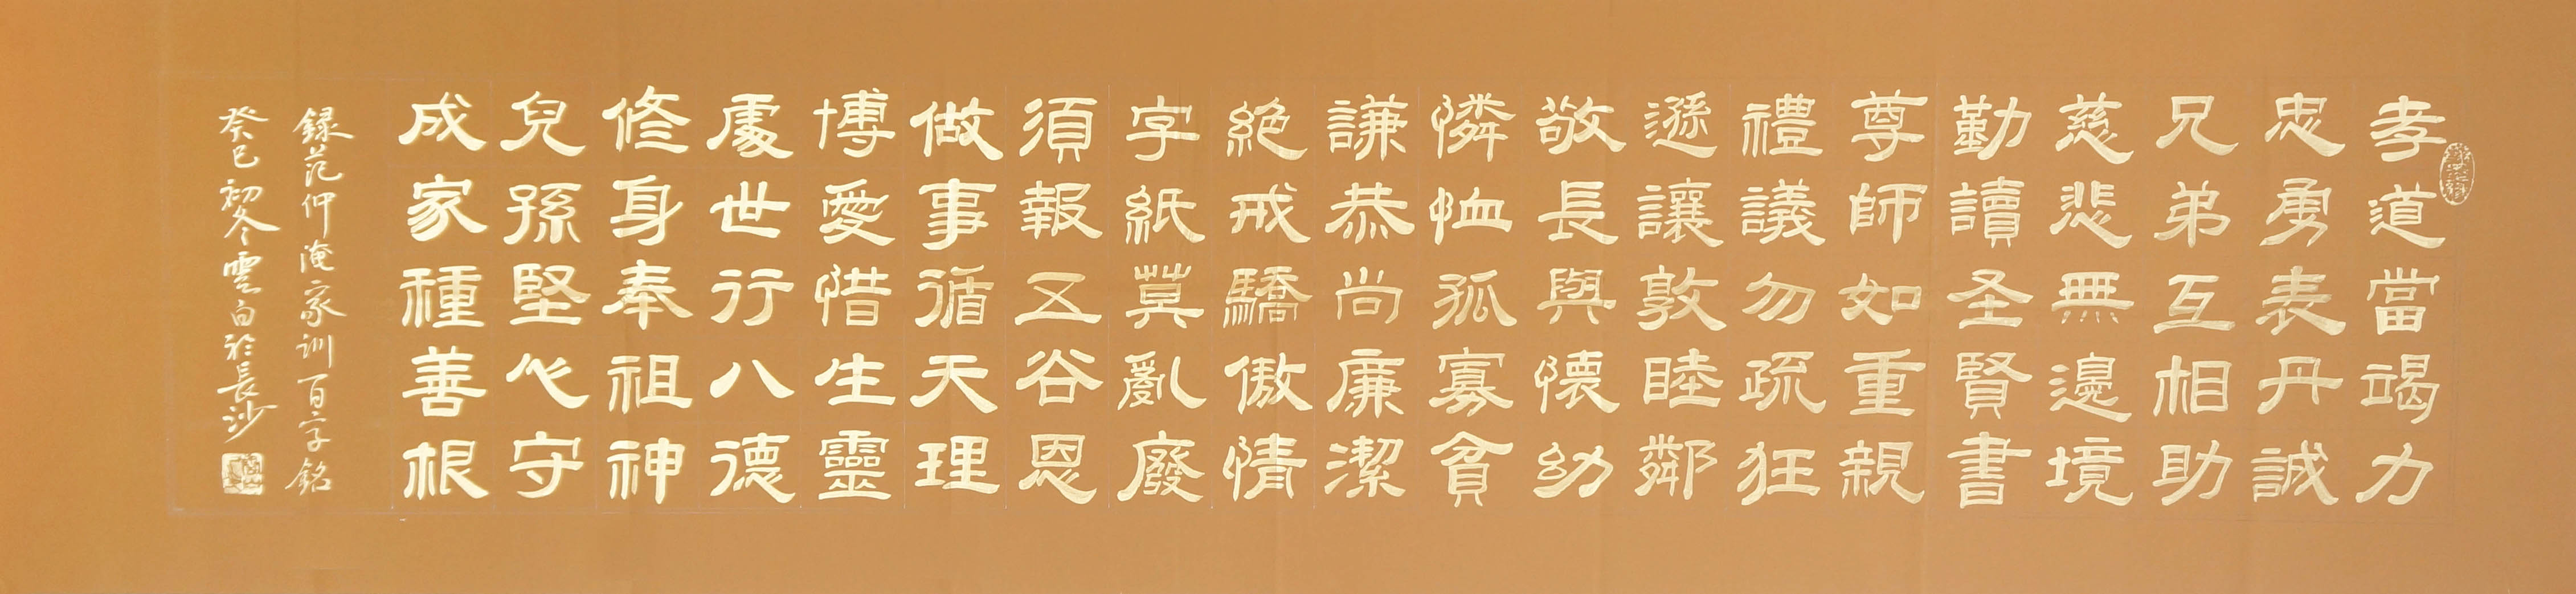 孝道當竭力
忠勇表丹誠
兄弟互相助
慈悲無邊境
勤讀圣賢書
尊師如重親
禮議勿疏狂
遜讓敦睦鄰
敬長與懷幼
憐恤孤寡貧
謙恭尚廉潔
絕戒驕傲情
字紙莫亂廢
須報五谷恩
做事循天理
博愛惜生靈
處世行八德
修身奉祖神
兒孫堅心守
成家種善根
録范仲淹家訓百字銘
癸巳初冬雲白於長沙